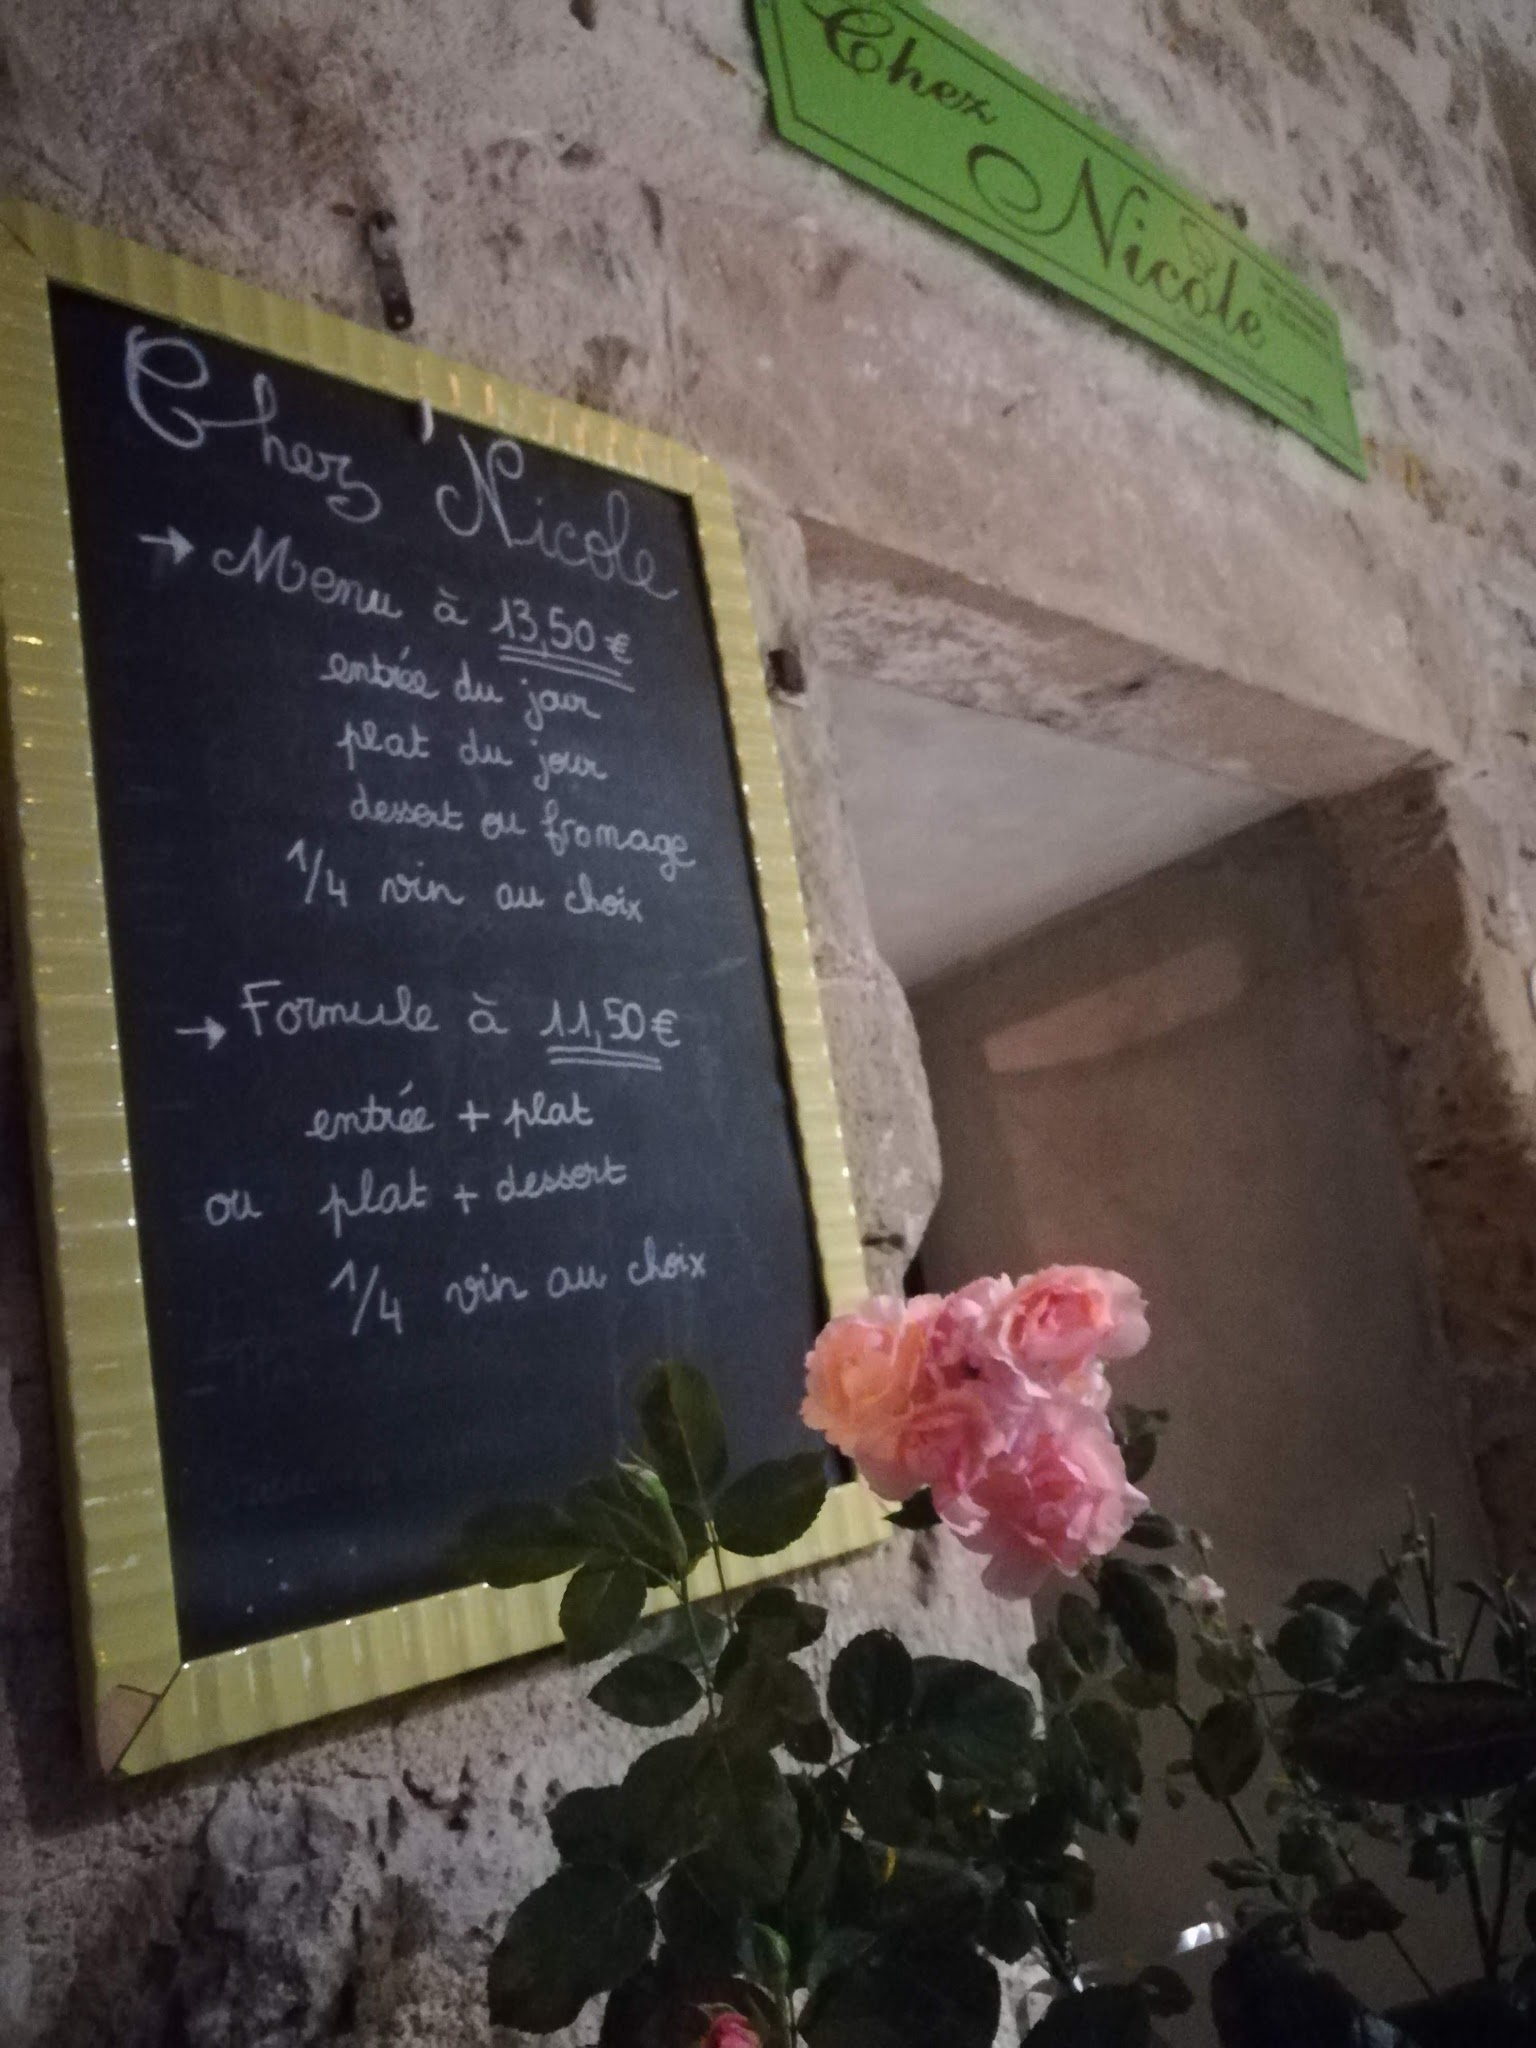 Chez
Nicole
Chez Nicole
→ Menu à 13,50 €
entrée du jour
plat du jour
dessert ou fromage
1/4 vin au choix
→ Formule à 11,50 €
entrée + plat
ou plat + dessert
1/4 vin au choix